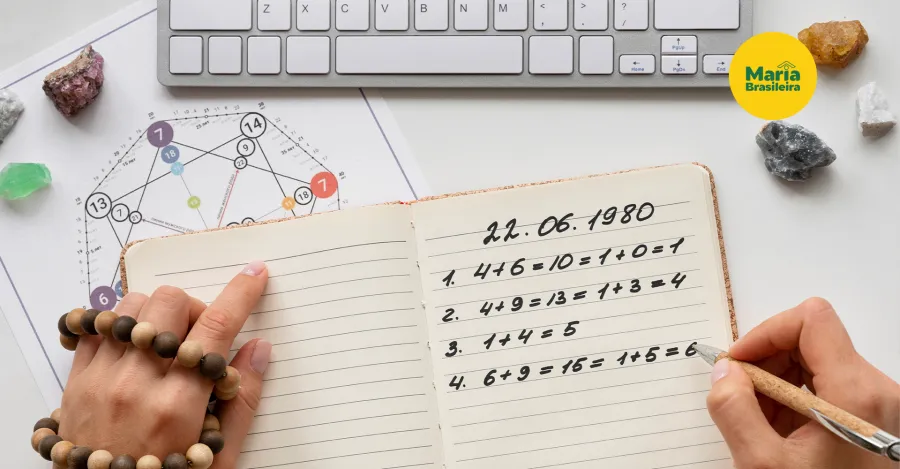 Z X C V B N M < , > . ? /
PgUp
Home PgDn End
Maria
Brasileira
7
14
18
9
22
13
7
21
18
7
6
22.06.1980
1. 4+6=10=1+0=1
2. 4+9=13=1+3=4
3. 1+4=5
4. 6+9=15=1+5=6